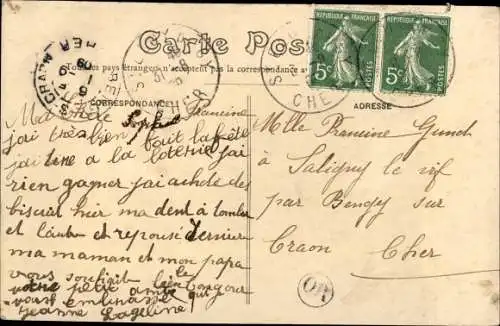 Carte Postale
Tous les pays étrangers n'acceptent pas la correspondance
RÉPUBLIQUE FRANÇAISE
5c
POSTES
RÉPUBLIQUE FRANÇAISE
5c
POSTES
CHER
CORRESPONDANCE
ADRESSE
Ma Francine
jai très bien fait la fête
jai tire a la loterie jai
rien gagner jai acheté des
biscuit hier ma dent à tomber
et l'autre et repousé derrière
ma maman et mon papa
vous souhait le bonjour
votre petit amie qui
vous embrasse
Jeanne Lageline
Mlle Francine
à Saligny le vif
par Bengy sur
Craon Cher
OR